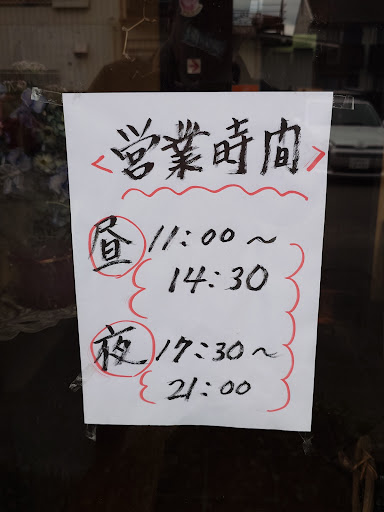 <営業時間>
昼 11:00～
14:30
夜 17:30～
21:00